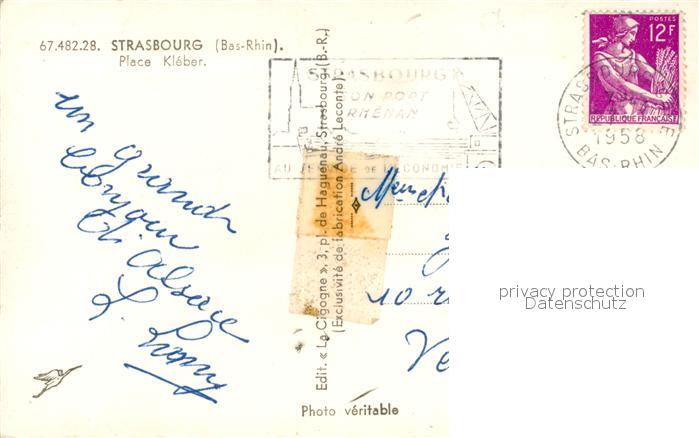 67.482.28. STRASBOURG (Bas-Rhin).
Place Kléber.
un grand
bonjour
d'Alsace
Edit. « La Cigogne », 3, pl. de Haguenau, Strasbourg (B.-R.)
(Exclusivité de fabrication André Leconte)
Photo véritable
STRASBOURG
SON PORT
RHÉNAN
AU SERVICE DE L'ÉCONOMIE
POSTES
12F
REPUBLIQUE FRANÇAISE
STRASBOURG
1958
BAS-RHIN
10 r
privacy protection
Datenschutz